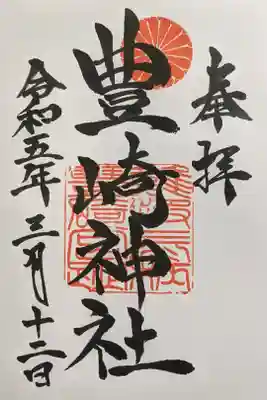 奉拝
豊崎神社
令和五年三月十二日